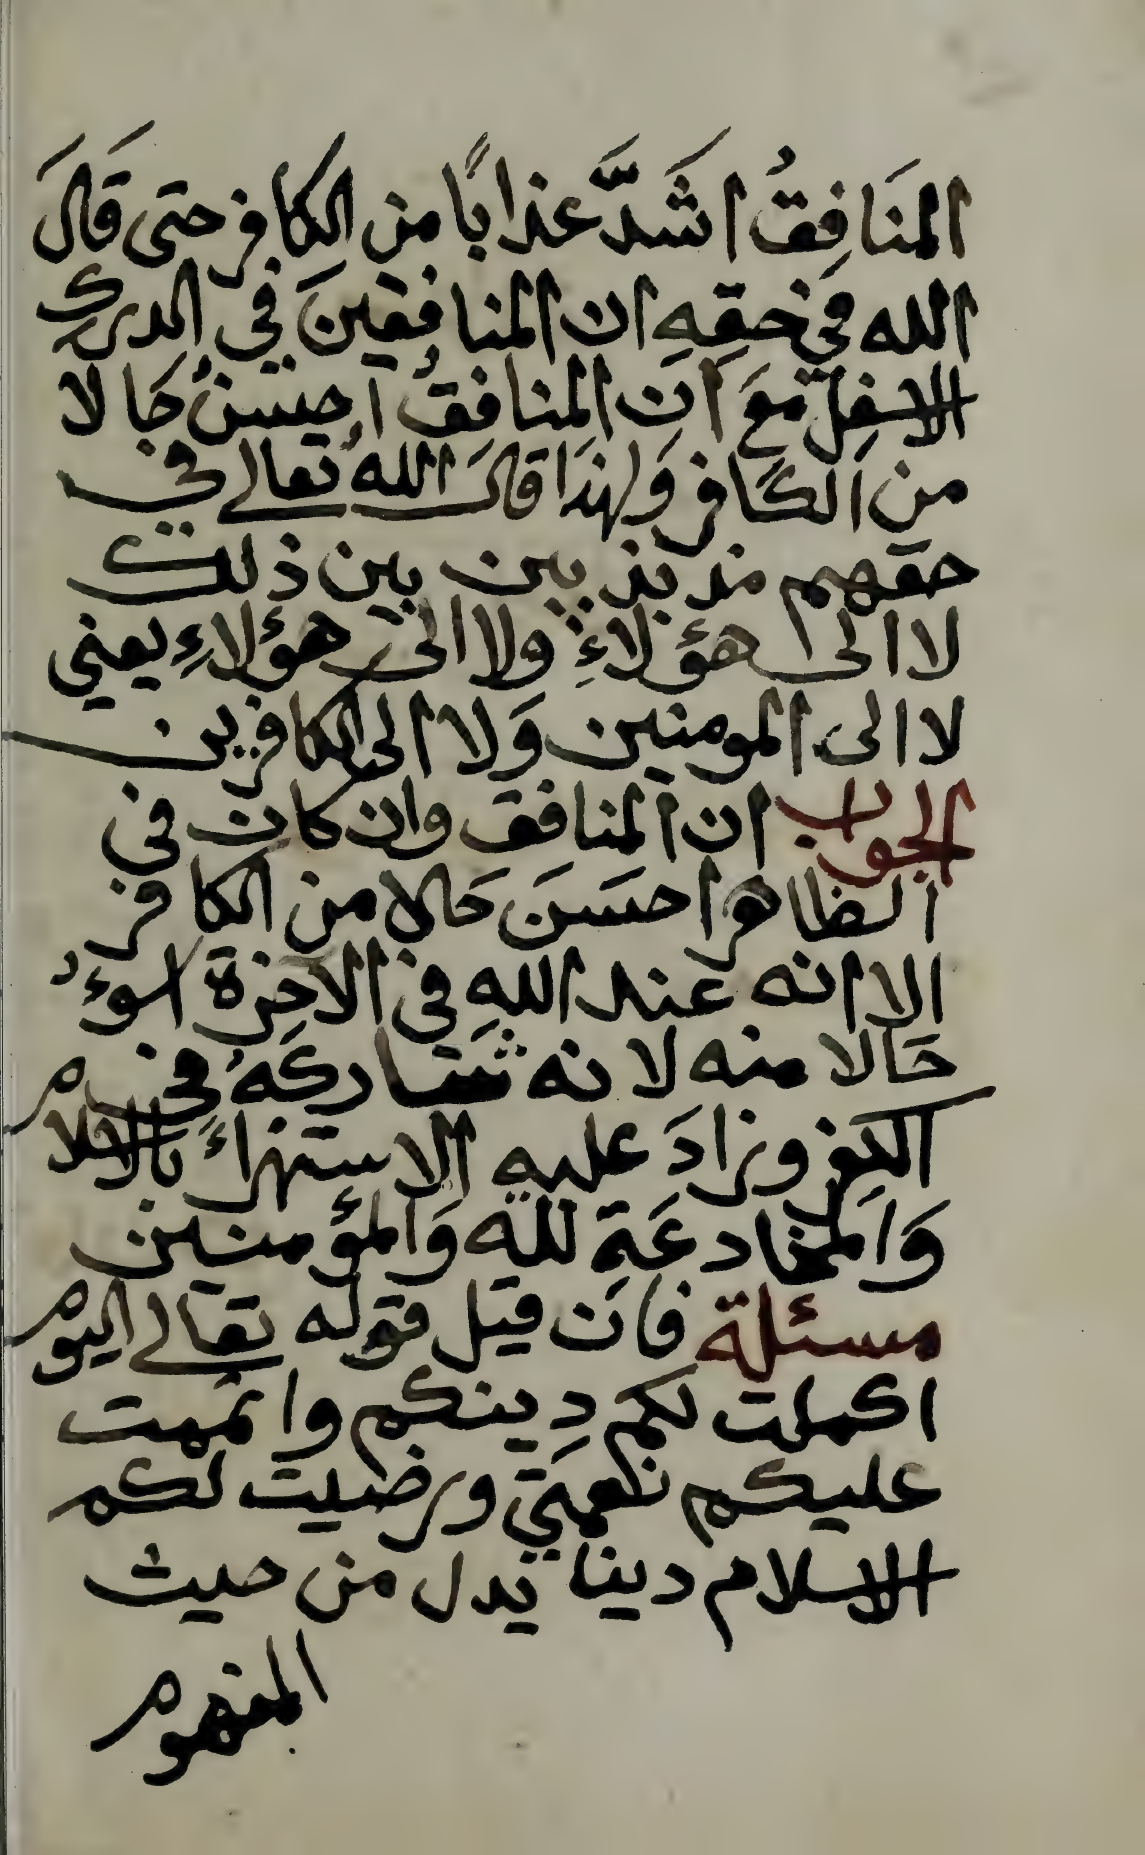 المنَافِقُ اشَدَّ عذابًا من الكافر حتى قَالَ
الله في حقهِ ان المنافقينَ في الدرك
الاسفل مَعَ انَ المنافقُ احسنُ حَالا
من الكَافر وَلهذَا قالَ اللهُ تعالى في
حقهم مذبذبين بين ذلك
لا الى هؤلاءِ ولا الى هؤلاءِ يعني
لا الى المومنين وَلا الى الكافرين
الجواب ان المنافق وان كان في
الظاهر احسَنَ حَالا من الكافر
الا انه عند اللهِ في الآخرة اسوءُ
حَالا منه لانه شاركَهُ في
الكفر وزادَ عليه الاستهزاءَ بالاسلام
وَالمخادعَةِ لله وَالمؤمنين
مسئلة فان قيل قوله تعالى اليوم
اكملت لكم دِينكم واتممت
عليكم نعمتي ورضيت لكم
الاسلام دينا يدل من حيث
المفهوم